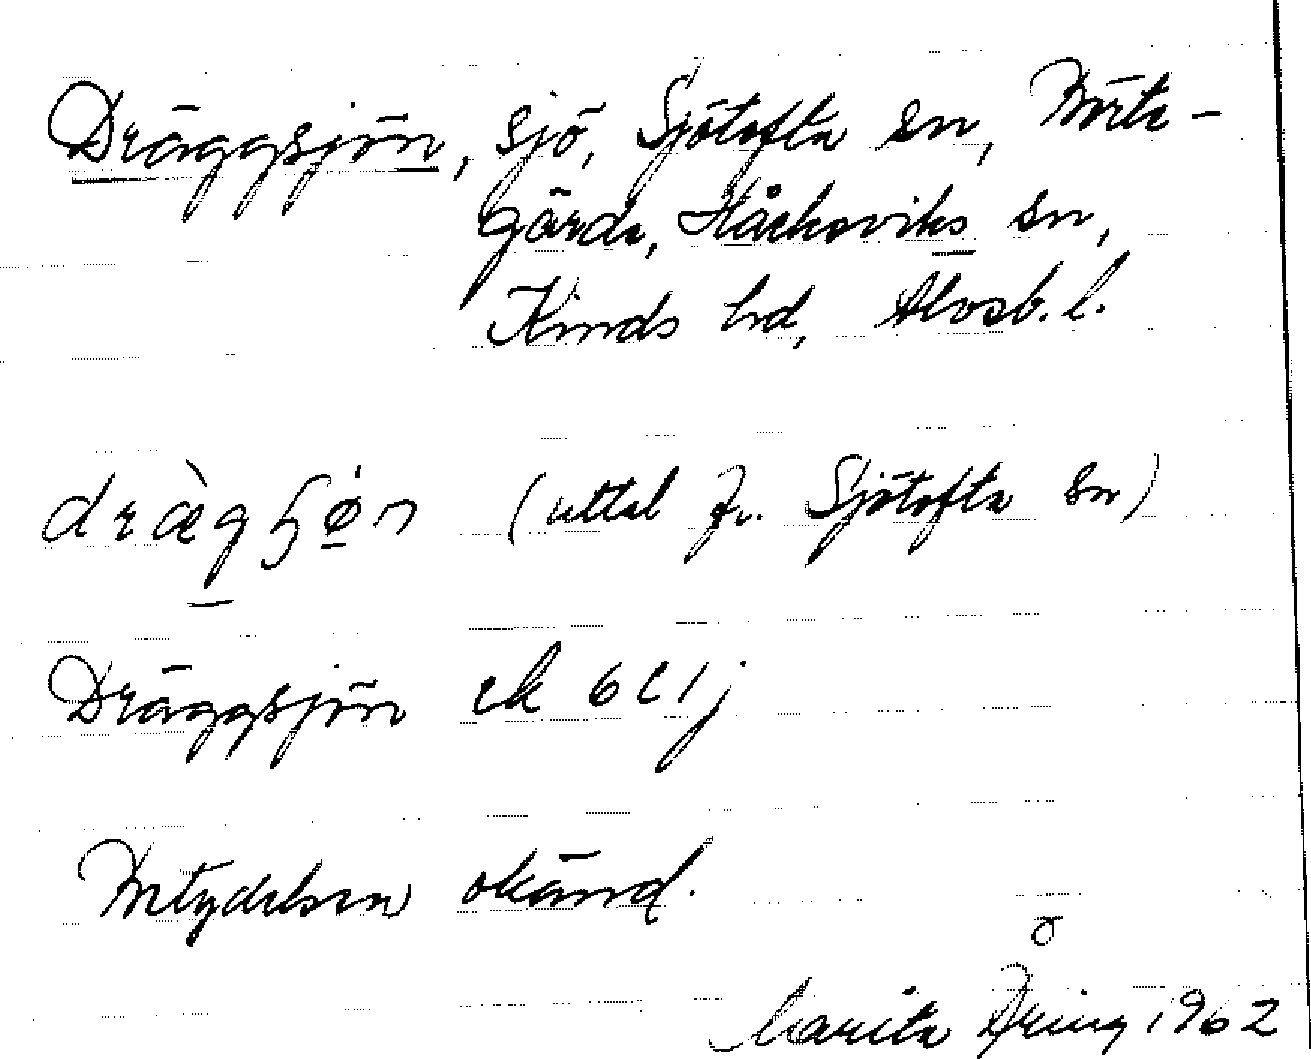 Dräggsjön, sjö, Sjötofta sn, Mårde-
gärde, Håcksviks sn,
Kinds hd, Älvsb. l.
(uttal fr. Sjötofta sn)
Dräggsjön ek 6 C 1 j
Betydelsen okänd.
Marita Åring 1962